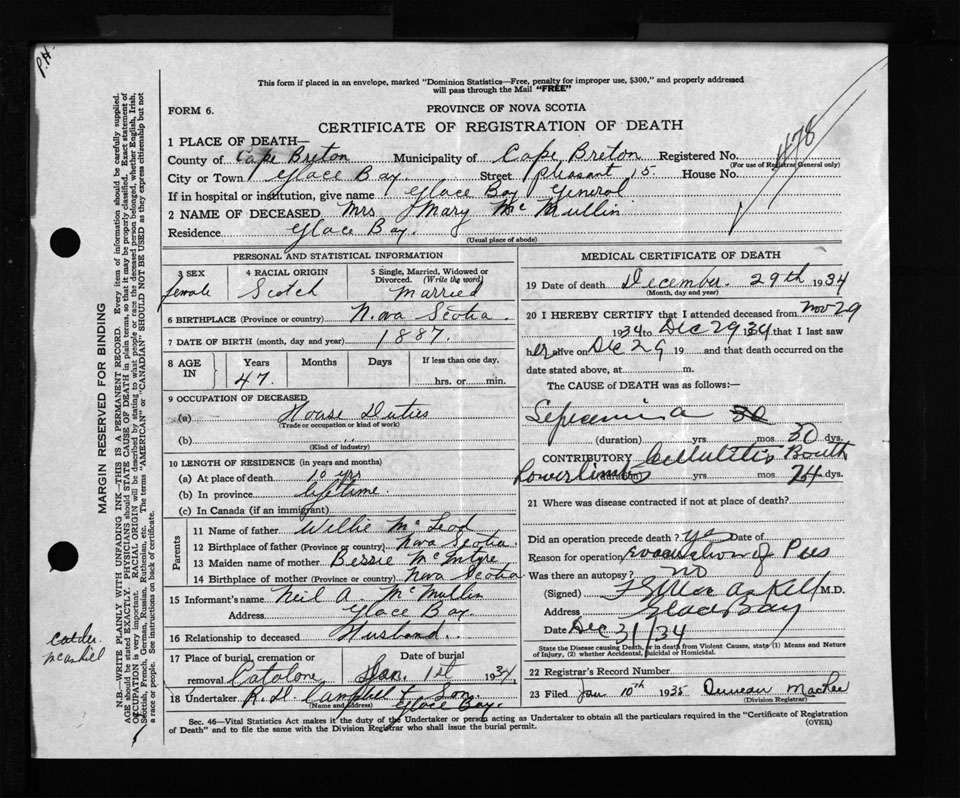 P.H.
This form if placed in an envelope, marked "Dominion Statistics—Free, penalty for improper use, $300," and properly addressed
will pass through the Mail "FREE"
FORM 6.
PROVINCE OF NOVA SCOTIA
CERTIFICATE OF REGISTRATION OF DEATH
478
1 PLACE OF DEATH—
County of Cape Breton Municipality of Cape Breton Registered No.
(For use of Registrar General only)
City or Town Glace Bay. Street Pleasant 15. House No.
If in hospital or institution, give name Glace Bay General
2 NAME OF DECEASED Mrs. Mary McMullin
Residence Glace Bay.
(Usual place of abode)
PERSONAL AND STATISTICAL INFORMATION
3 SEX female
4 RACIAL ORIGIN Scotch
5 Single, Married, Widowed or Divorced. (Write the word) Married
6 BIRTHPLACE (Province or country) Nova Scotia.
7 DATE OF BIRTH (month, day and year) 1887.
8 AGE IN Years Months Days If less than one day,
47. hrs. or min.
9 OCCUPATION OF DECEASED
(a) House Duties
(Trade or occupation or kind of work)
(b)
(Kind of industry)
10 LENGTH OF RESIDENCE (in years and months)
(a) At place of death 10 yrs
(b) In province lifetime.
(c) In Canada (if an immigrant)
Parents
11 Name of father Willie McLeod
12 Birthplace of father (Province or country) Nova Scotia.
13 Maiden name of mother Bessie McIntyre
14 Birthplace of mother (Province or country) Nova Scotia
15 Informant's name Neil A. McMullin
Address Glace Bay.
16 Relationship to deceased Husband.
17 Place of burial, cremation or Date of burial
removal Catalone Jan. 1st 1934
18 Undertaker R. D. Campbell & Son.
(Name and address) Glace Bay.
MEDICAL CERTIFICATE OF DEATH
19 Date of death December 29th 1934
(Month, day and year)
20 I HEREBY CERTIFY that I attended deceased from Nov 29
1934 to Dec 29 1934 that I last saw
her alive on Dec 29 19 and that death occurred on the
date stated above, at m.
The CAUSE of DEATH was as follows:—
Septicemia 30
(duration) yrs mos 30 dys.
CONTRIBUTORY Cellulitis Both
Lower limbs (duration) yrs mos 24 dys.
21 Where was disease contracted if not at place of death?
Did an operation precede death? Yes Date of
Reason for operation Evacuation of Pus
Was there an autopsy? no
(Signed) M.D.
Address Glace Bay
Date Dec 31/34
State the Disease causing Death, or in death from Violent Causes, state (1) Means and Nature
of Injury, (2) whether Accidental, Suicidal or Homicidal.
22 Registrar's Record Number
23 Filed Jan 10th 1935 Duncan MacRae
(Division Registrar)
Sec. 46—Vital Statistics Act makes it the duty of the Undertaker or person acting as Undertaker to obtain all the particulars required in the "Certificate of Registration
of Death" and to file the same with the Division Registrar who shall issue the burial permit.
(OVER)
MARGIN RESERVED FOR BINDING
N.B.—WRITE PLAINLY WITH UNFADING INK—THIS IS A PERMANENT RECORD. Every item of information should be carefully supplied.
AGE should be stated EXACTLY. PHYSICIANS should STATE CAUSE OF DEATH in plain terms, so that it may be properly classified. Exact statement of
OCCUPATION is very important. RACIAL ORIGIN will be described by stating to what people or race the deceased person belonged, whether English, Irish,
Scottish, French, German, Russian, Ruthenian, etc. The terms "AMERICAN" or "CANADIAN" SHOULD NOT BE USED as they express citizenship but not
a race or people. See instructions on back of certificate.